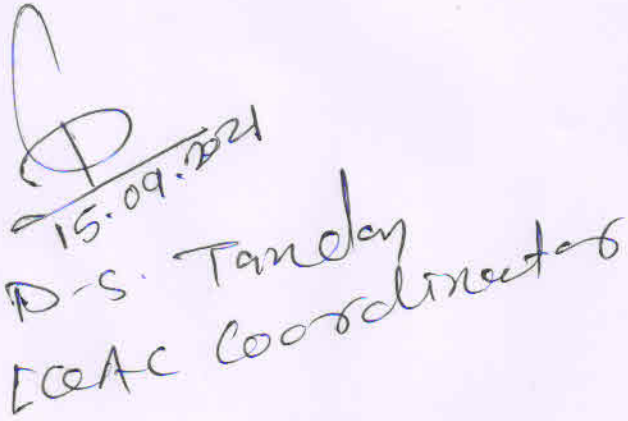 15.09.2021
D.S. Tandan
IQAC Coordinator